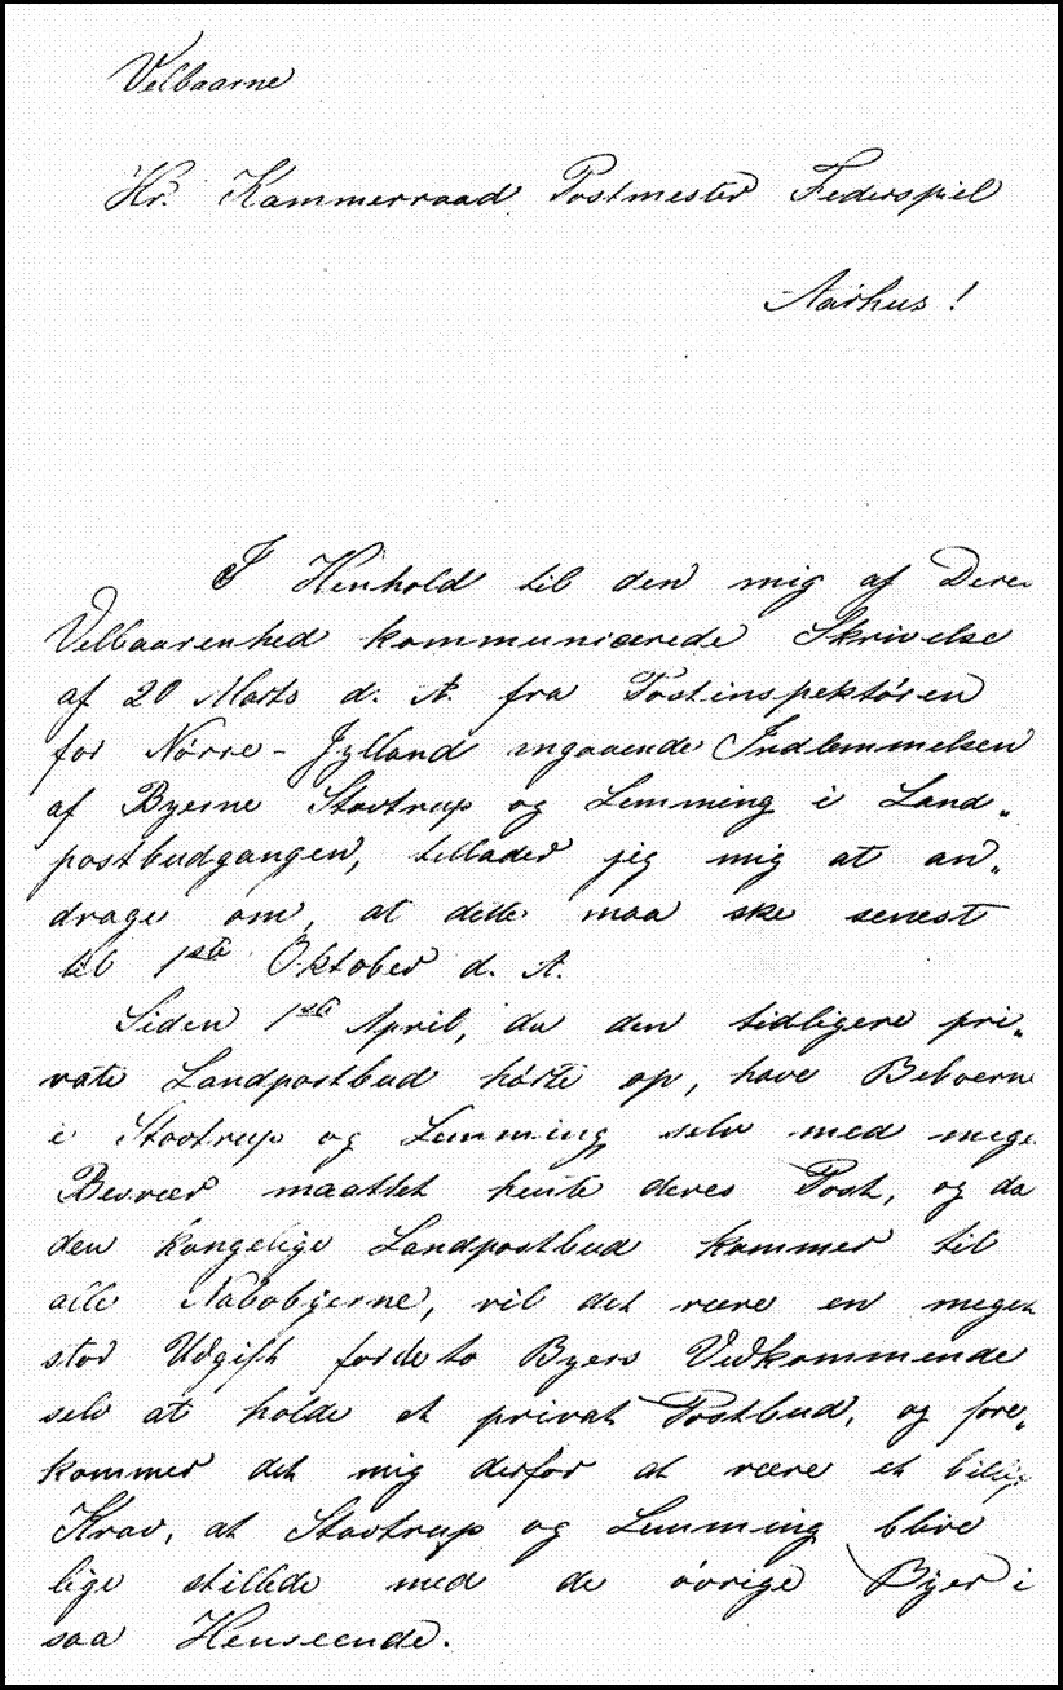 Velbaarne
Hr. Kammerraad Postmester Federspiel
Aarhus!
I Henhold til den mig af Deres
Velbaarenhed kommunicerede Skrivelse
af 20 Marts d. A. fra Postinspektören
for Nörre-Jylland angaaende Indlemmelsen
af Byerne Stavtrup og Lemming i Land„
postbudgangen, tillader jeg mig at an„
drage om, at dette maa ske senest
til 1ste Oktober d. A.
Siden 1ste April, da den tidligere pri„
vate Landpostbud hörte op, have Beboerne
i Stavtrup og Lemming selv med meget
Besvær maattet hente deres Post, og da
den kongelige Landpostbud kommer til
alle Nabobyerne, vil det være en meget
stor Udgift for de to Byers Vedkommende
selv at holde et privat Postbud, og fore„
kommer det mig derfor at være et billigt
Krav, at Stavtrup og Lemming blive
lige stillede med de övrige Byer i
saa Henseende.